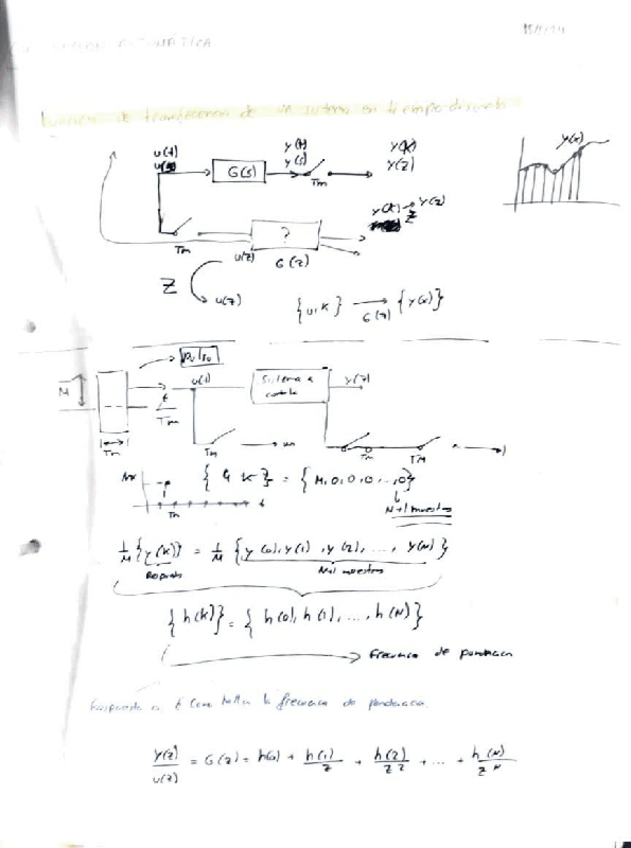 AUTOMÁTICA
Función de transferencia de un sistema en tiempo discreto
u(t)
G(s)
y(t)
y(s)
Tm
y(k)
y(z)
y(k) → y(z)
Z
Tm
?
u(z)
G(z)
Z
u(z)
{u,k} → {y(z)}
G(z)
Pulso
M
Tm
t
Tm
u(t)
Sistema a
y(z)
Tm
Tm
Tm
{ k} = {M,0,0,0,...,0}
Tm
N+1 muestras
1/M {y(k)} = 1/M {y(0), y(1), y(2), ..., y(N)}
Respuesta
N+1 muestras
{h(k)} = {h(0), h(1), ..., h(N)}
→ frecuencia de ponderación
la frecuencia de ponderación.
y(z)/u(z) = G(z) = h(0) + h(1)/z + h(2)/z² + ... + h(N)/z^N